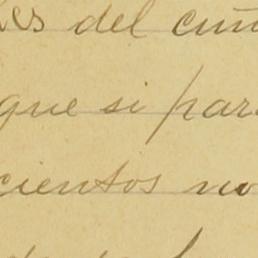 es del cuñ
que si par
cientos no